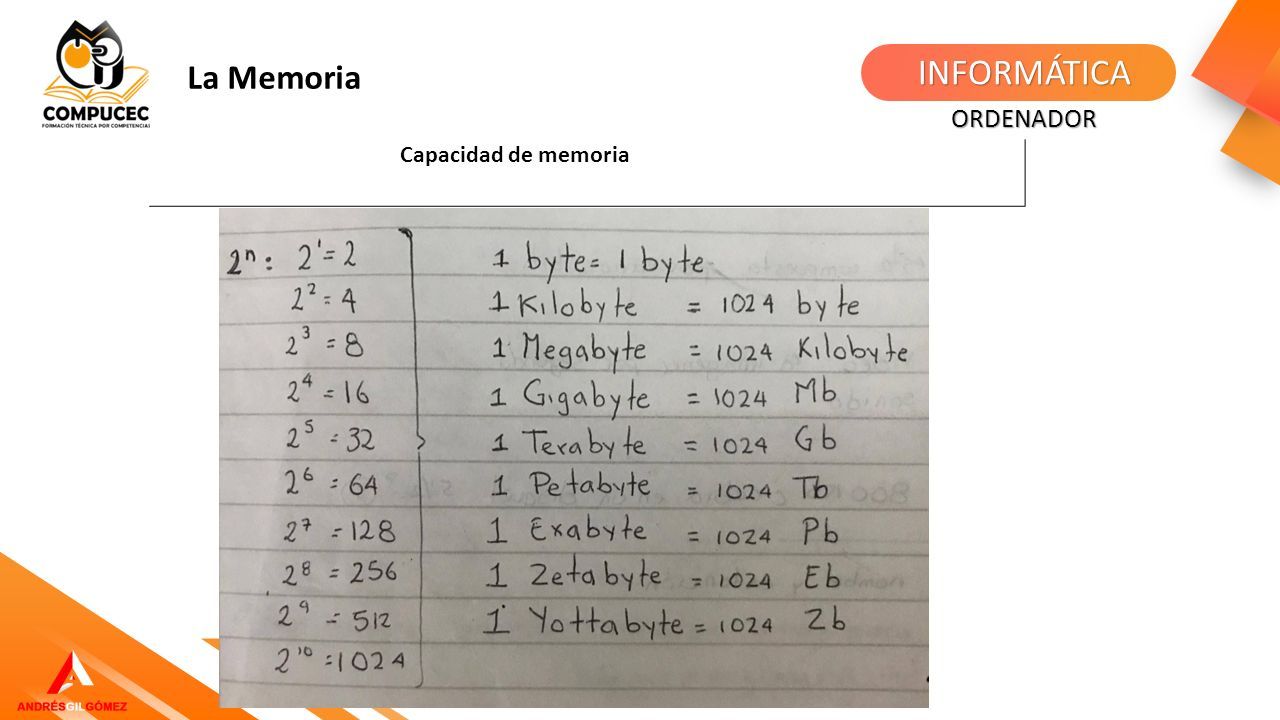 COMPUCEC
FORMACIÓN TÉCNICA POR COMPETENCIAS
La Memoria
INFORMÁTICA
ORDENADOR
Capacidad de memoria
2ⁿ: 2¹=2
2²=4
2³=8
2⁴=16
2⁵=32
2⁶=64
2⁷=128
2⁸=256
2⁹=512
2¹⁰=1024
1 byte = 1 byte
1 Kilobyte = 1024 byte
1 Megabyte = 1024 Kilobyte
1 Gigabyte = 1024 Mb
1 Terabyte = 1024 Gb
1 Petabyte = 1024 Tb
1 Exabyte = 1024 Pb
1 Zetabyte = 1024 Eb
1 Yottabyte = 1024 Zb
ANDRÉSGILGÓMEZ